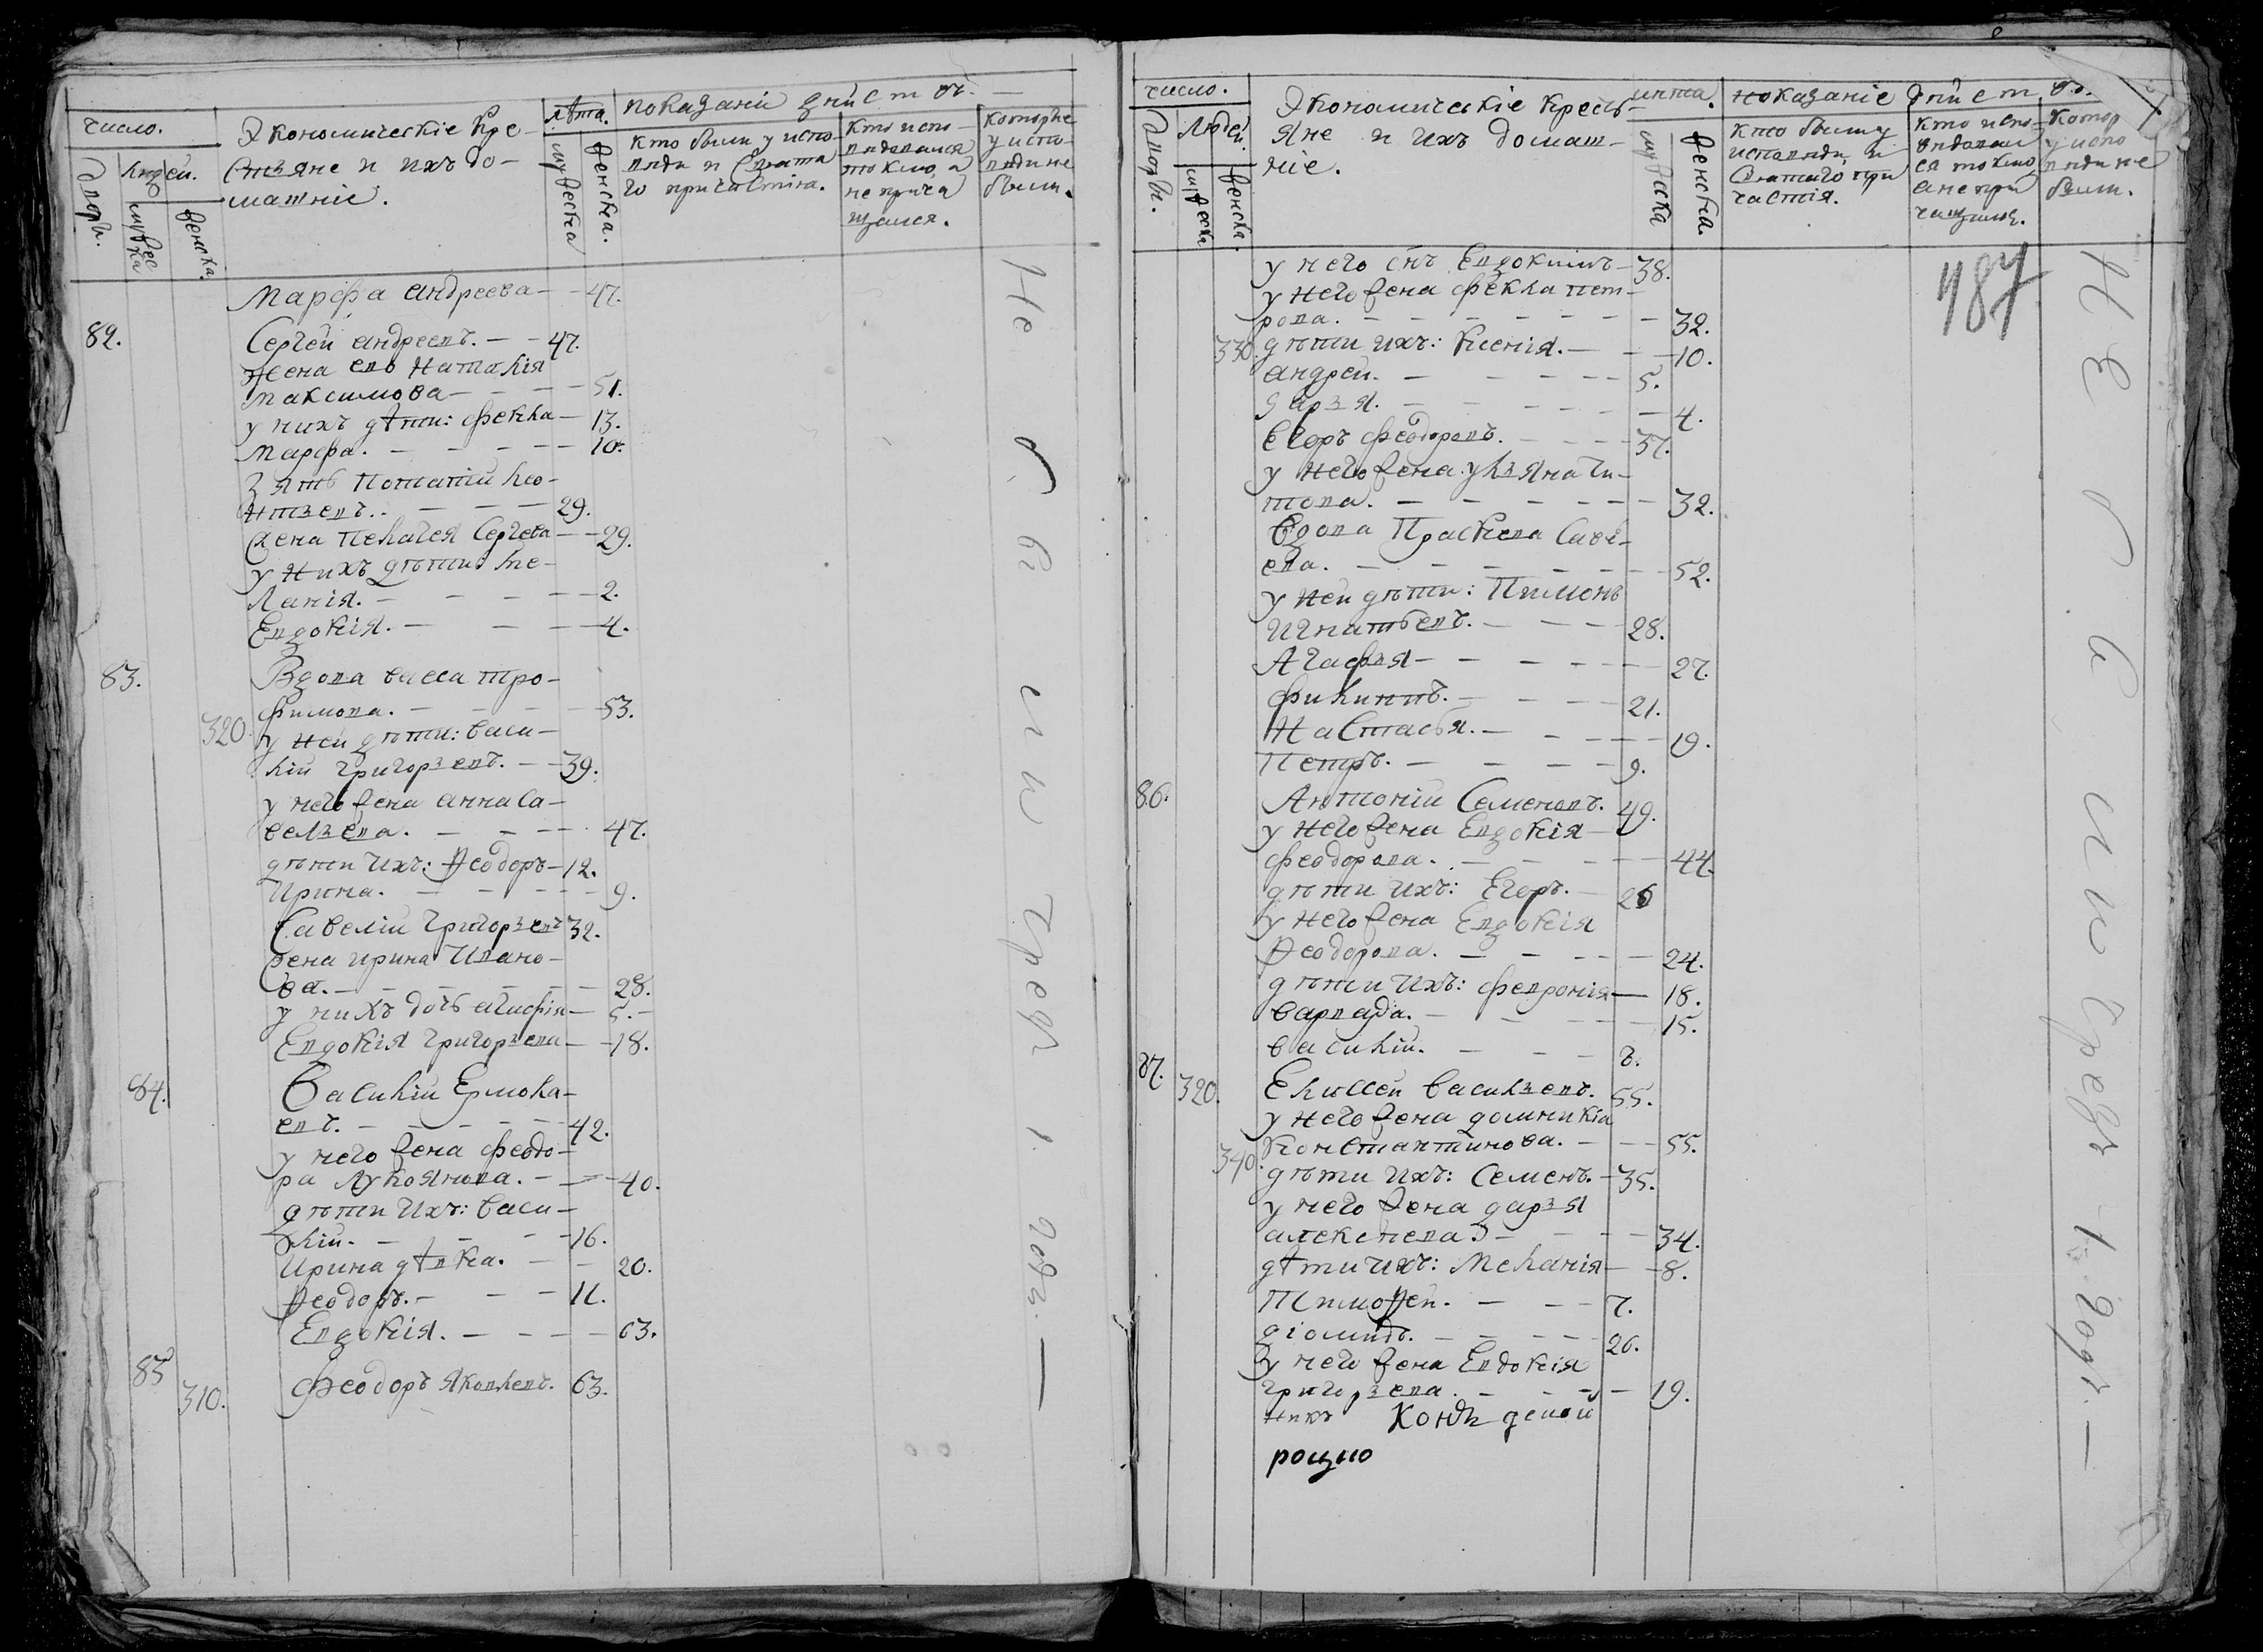 число.
Экономическіе Кре-
стьяне и ихъ до-
машніе.
лѣта.
показаніи дѣйствъ.
дворы.
людей.
мужеска
женска.
мужеска
женска.
Кто были у испо-
вѣди и Свята
го причастія.
Кто испо-
вѣдался
токмо, а
не прича
щался.
Которые
у испо-
вѣди не
были.
Марфа андреева — 47.
82.
Сергей андреевъ. — 47.
жена его Наталія
максимова — 51.
у нихъ дѣти: фекла — 13.
марфа. — 10.
зять Потапій лео-
нтьевъ. — 29.
жена пелагея Сергева — 29.
у нихъ дѣти: ме-
ланія. — 2.
Евдокія. — 4.
83.
Вдова васса тро-
фимова. — 53.
320.
у ней дѣти: васи-
лій григорьевъ. — 39.
у него жена анна са-
вельева. — 47.
дѣти ихъ: Ѳеодоръ — 12.
Ирина. — 9.
Савелій григорьевъ 32.
жена ирина Ивано-
ва. — 28.
у нихъ дочь агафія — 5. —
Евдокія григорьева — 18.
84.
Василій Ермола-
евъ. — 42.
у него жена феодо-
ра Лукоянова. — 40.
дѣти ихъ: васи-
лій. — 16.
Ирина дѣвка. — 20.
Ѳеодоръ. — 11.
Евдокія. — 63.
85
310.
феодоръ яковлевъ. 63.
Не бысть чрезъ 1. годъ. —
число.
Экономическіе кресть-
яне и ихъ домаш-
ніе.
лѣта.
показаніе дѣйствъ.
дворы.
людей.
мужеска
женска.
мужеска
женска.
кто были у
исповѣди и
святаго при
частія.
кто испо-
вѣдалсь
ся токмо,
а не при
чащался.
Котор
у испо
вѣди не
были.
487
у него снъ Евдокимъ — 38.
у него жена фекла пет-
рова. — 32.
330.
дѣти ихъ: Ксенія. — 10.
андрей. — 5.
дарья. — 4.
Егоръ феодоровъ. — 37.
у него жена ульяна ти-
това. — 32.
Вдова Прасковья Саве-
ева. — 52.
у ней дѣти: Пимонъ
игнатьевъ. — 28.
Агафья — 27.
филиппъ. — 21.
Настасья. — 19.
Петръ. — 9.
86.
Антоній Семеновъ. 49.
у него жена Евдокія —
феодорова. — 44.
дѣти ихъ: Егоръ. — 26
у него жена Евдокія
Ѳеодорова. — 24.
дѣти ихъ: февронія — 18.
варвара. — 15.
василій. — 8.
87.
320.
Елисей васильевъ. 55.
у него жена домникіа
340.
Константинова. — 55.
дѣти ихъ: Семенъ. — 35.
у него жена дарья
алексѣева. — 34.
дѣти ихъ: меланія — 8.
Тимоѳей. — 7.
діомидъ. — 20.
у него жена Евдокія
григорьева. — 19.
Не бысть чрезъ 1. годъ. —